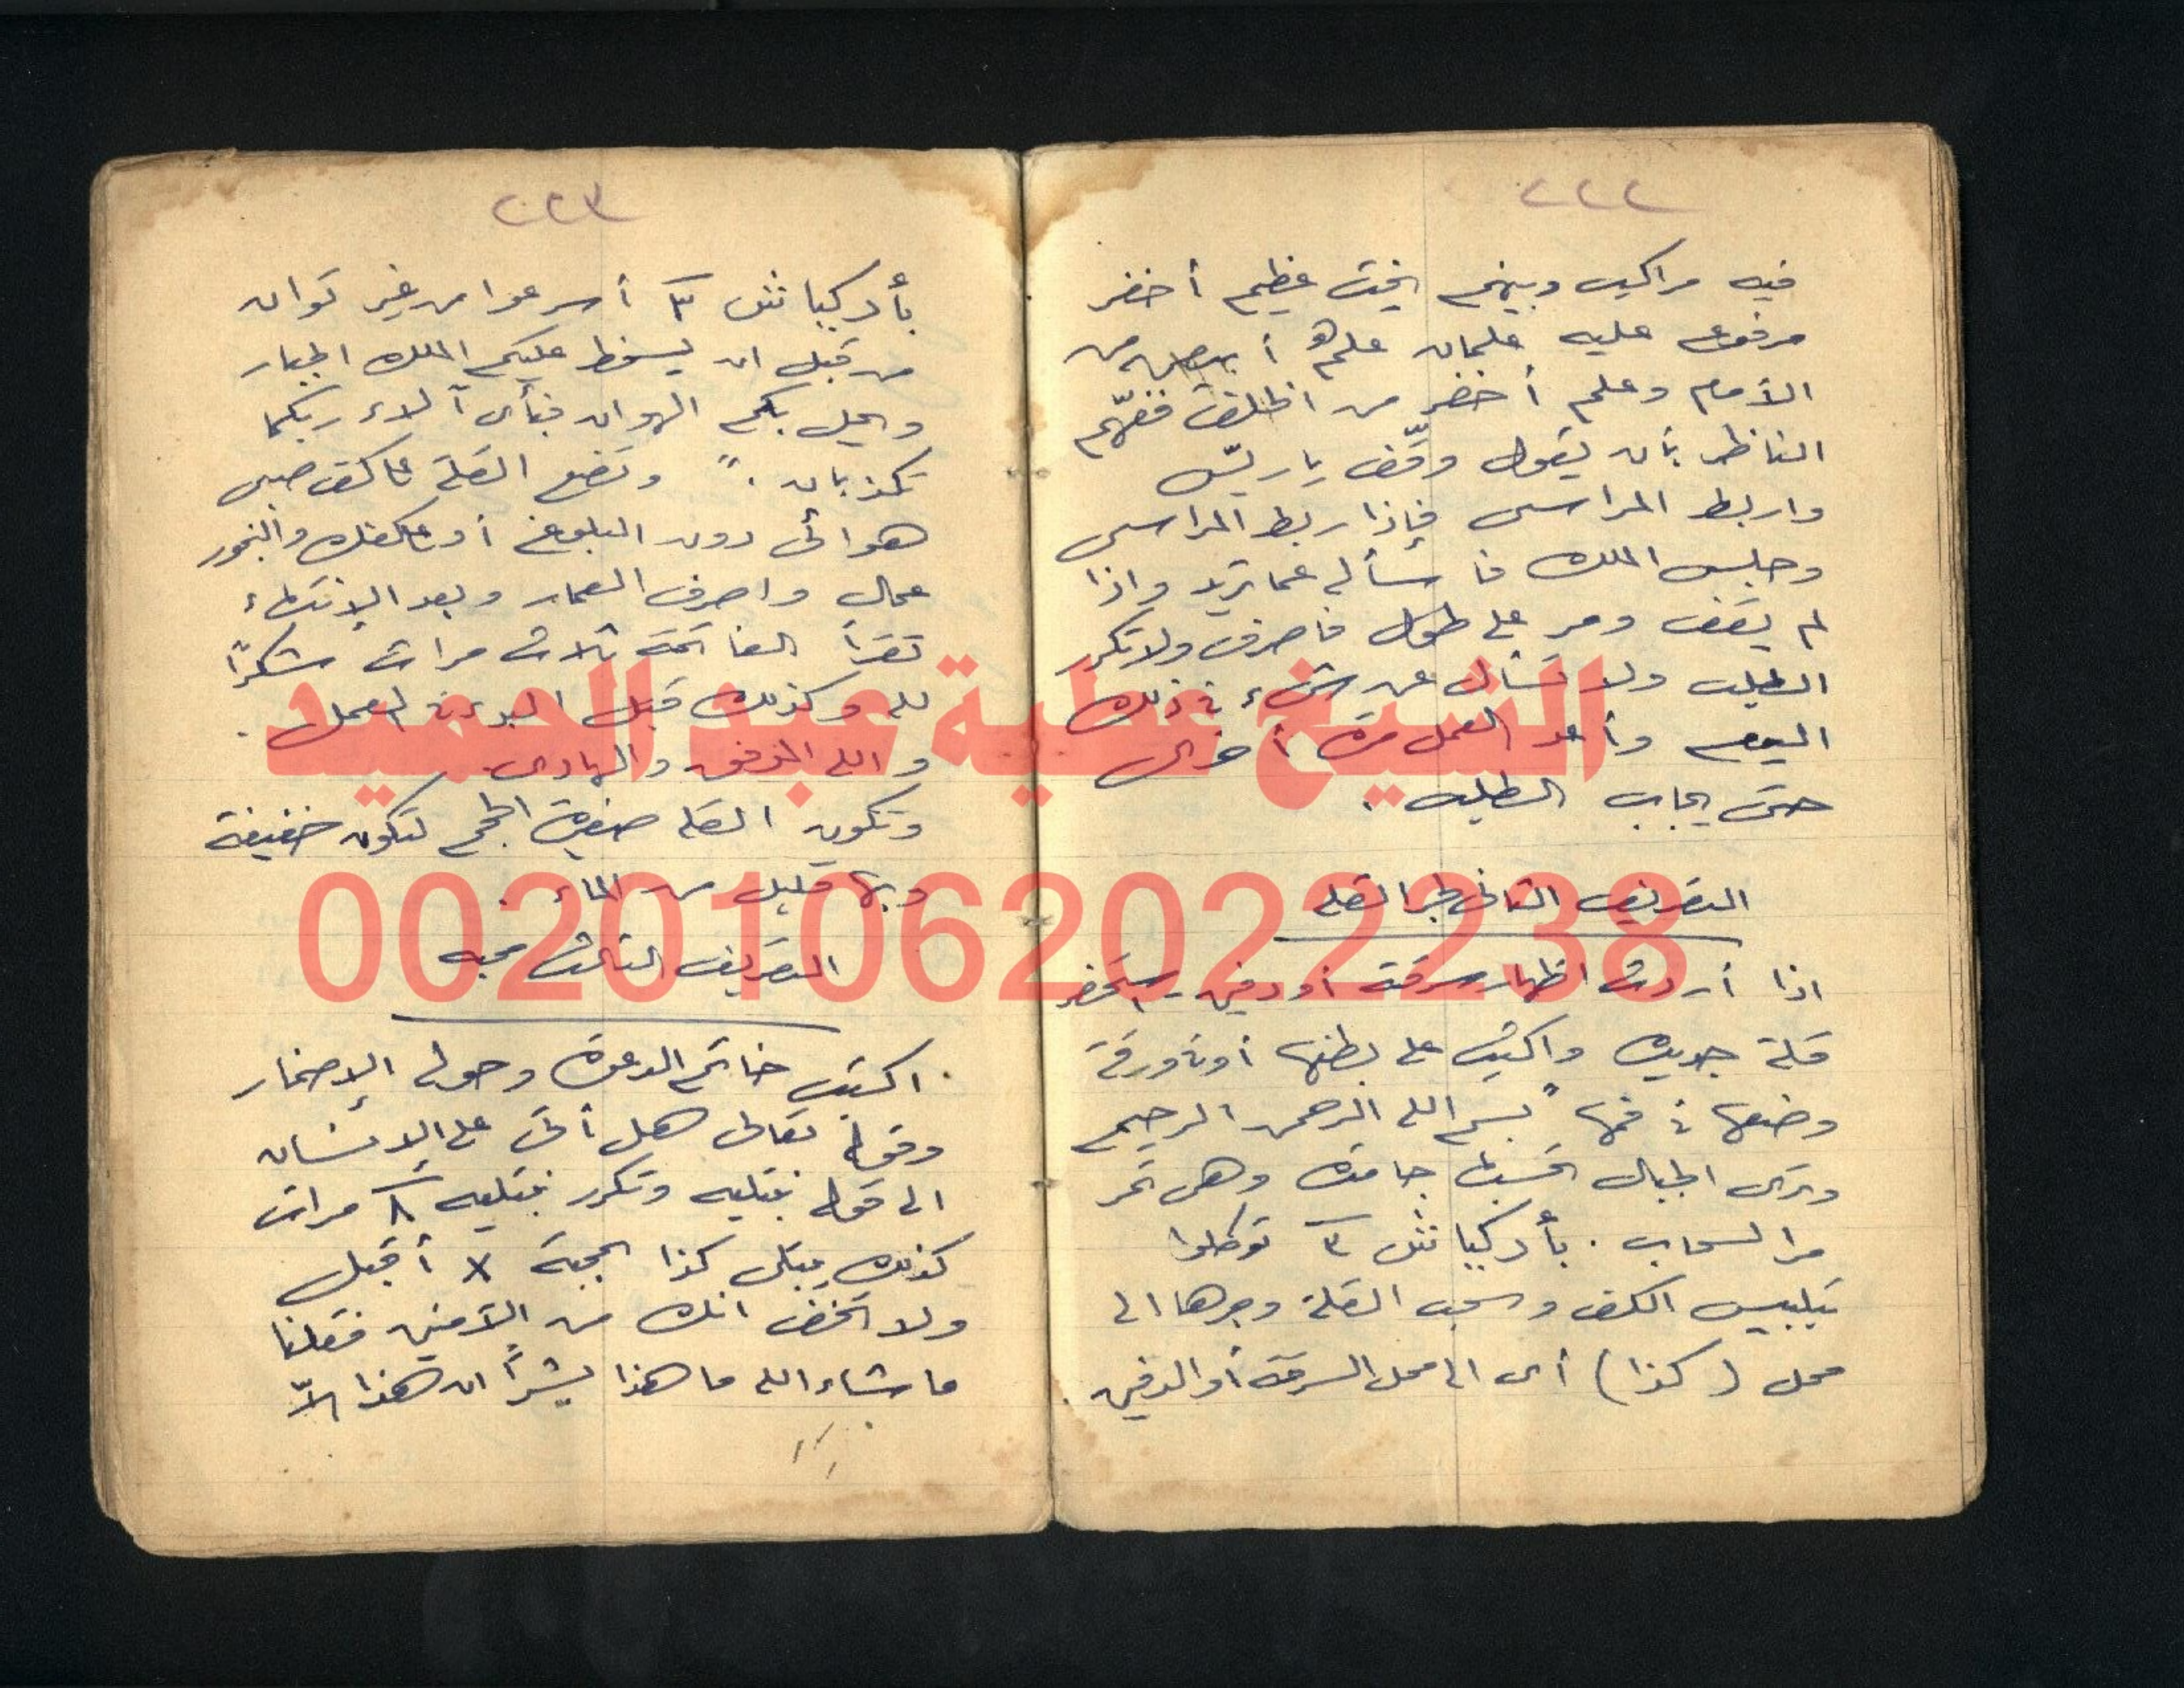 ٢٢٢
فيه مراكب وبينهم يخت عظيم أخضر
مرفوع عليه علمان علم أبيض من
الأمام وعلم أخضر من الخلف ففهّم
الناظر بأن يقول وقّف ياريّس
واربط المراسى فإذا ربط المراسى
وجلس الملك فاسأله عما تريد واذا
لم يقف ومر على طول فاصرف ولا تكرر
الطلب ولا تسأل عن شىء فى ذلك
اليوم وأعد العمل مرة أخرى
حتى يجاب الطلب .
التصريف الثانى لجر القلة
اذا أردت اظهار سرقة أو دفين استحضر
قلة جديدة واكتب على بطنها أو فى ورقة
وضعها فى فمها " بسم الله الرحمن الرحيم
وترى الجبال تحسبها جامدة وهى تمر
مر السحاب . بأدكياتش ٣ توكلوا
بتلبيس الكف وسحب القلة وجرها الى
محل (كذا) أى الى محل السرقة أو الدفين .
٢٢٣
بأدكياتش ٣ أسرعوا من غير توان
من قبل ان يسخط عليكم الملك الجبار
ويحل بكم الهوان فبأى آلاء ربكما
تكذبان . " وتضع القلة على كف صبى
هوائى دون البلوغ أو على كفك والبخور
عمال واصرف العمار وبعد الإنتهاء
تقرأ الفاتحة ثلاث مرات شكرًا
لله وكذلك قبل البدء فى العمل .
والله الموفق والهادى .
وتكون القلة صغيرة الحجم لتكون خفيفة
وبها قليل من الماء .
التصريف الثالث محبه
اكتب خاتم الدعوة وحوله الإضمار
وقوله تعالى هل أتى على الإنسان
الى قوله نبتليه وتكرر نبتليه ٨ مرات
كذلك يبتلى كذا بمحبة x أقبل
ولا تخف انك من الآمنين فقلنا
ما شاء الله ما هذا بشرًا ان هذا إلاّ
الشيخ عطية عبد الحميد
00201062022238